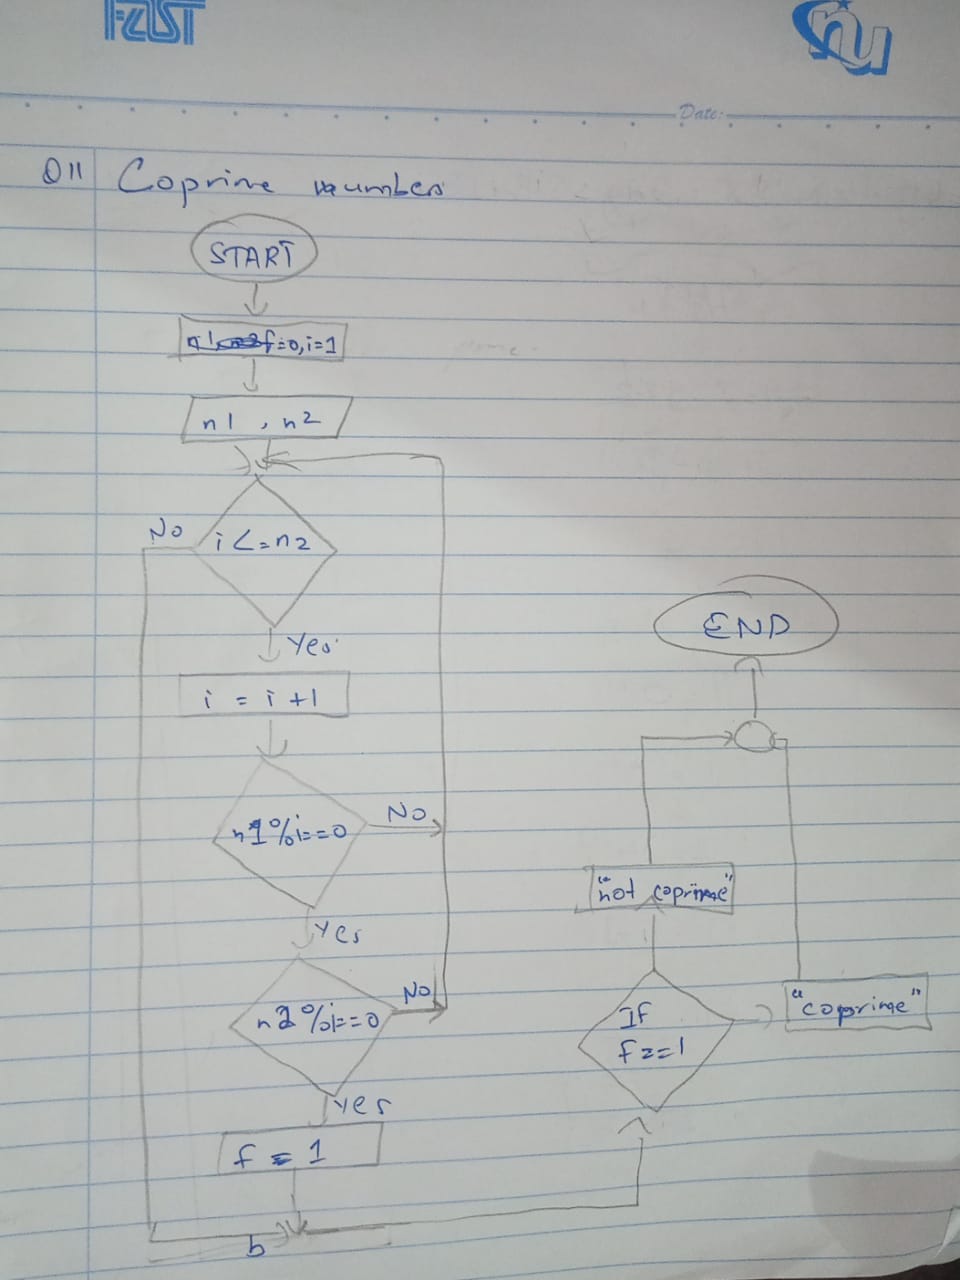 FAST
nu
Date:
Q11 Coprime number
START
f=0,i=1
n1 , n2
i<=n2
No
Yes
i = i +1
n1%i==0
No
Yes
n2%i==0
No
Yes
f = 1
If
f==1
"not coprime"
"coprime"
END